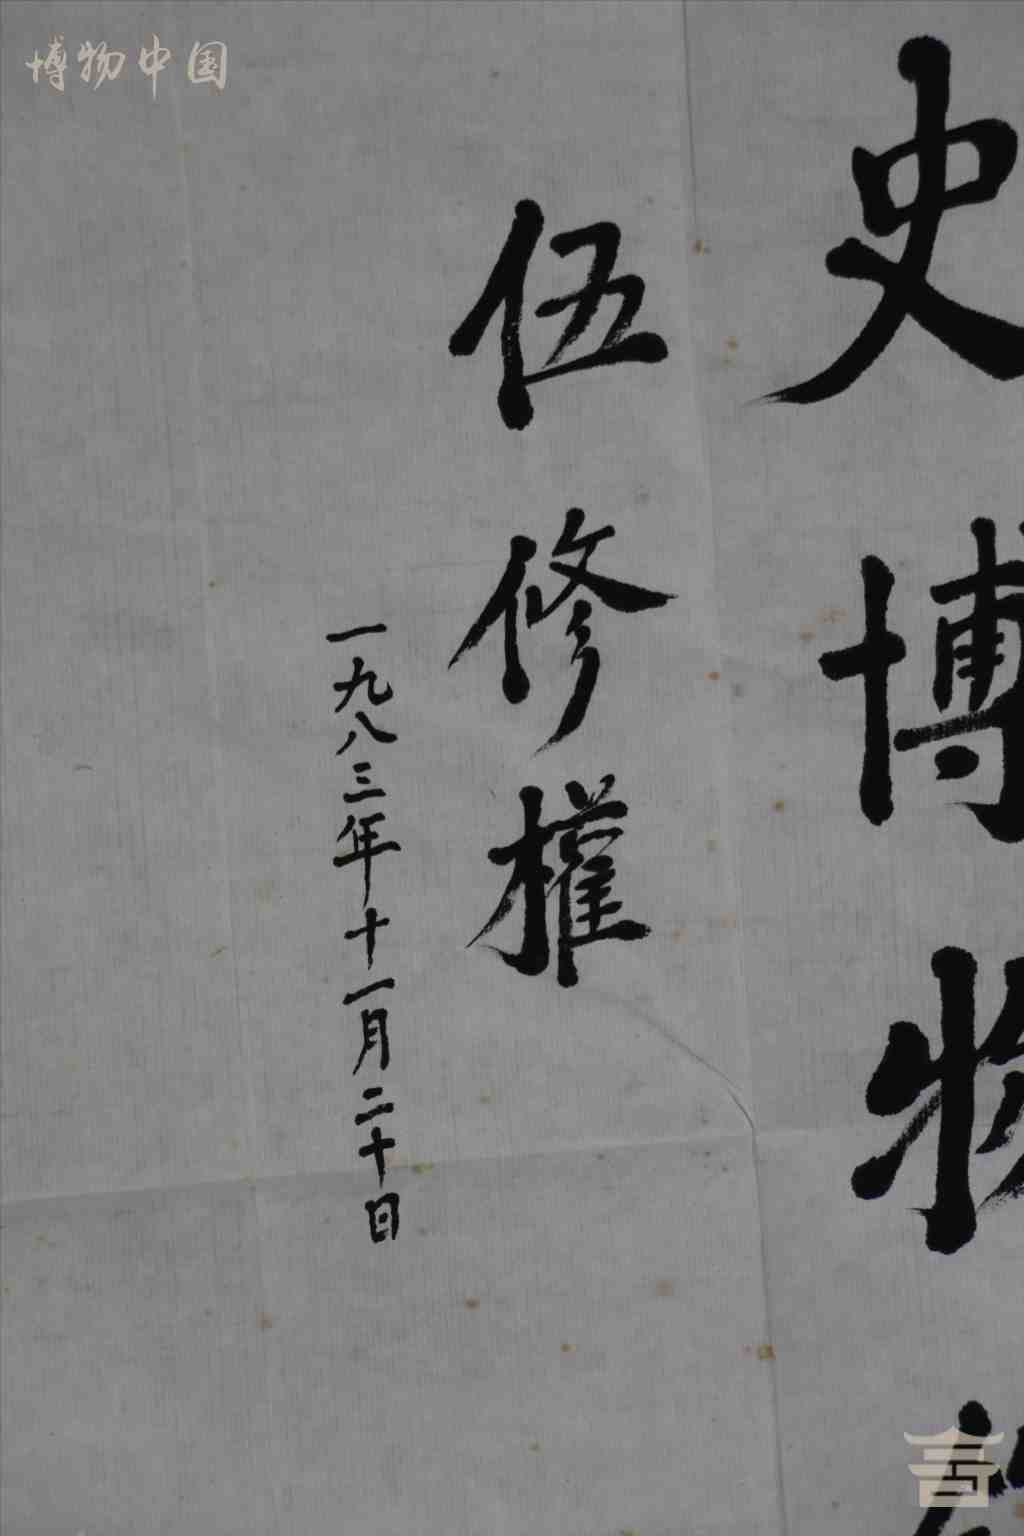 博物中国
史博物
伍修權
一九八三年十一月二十日